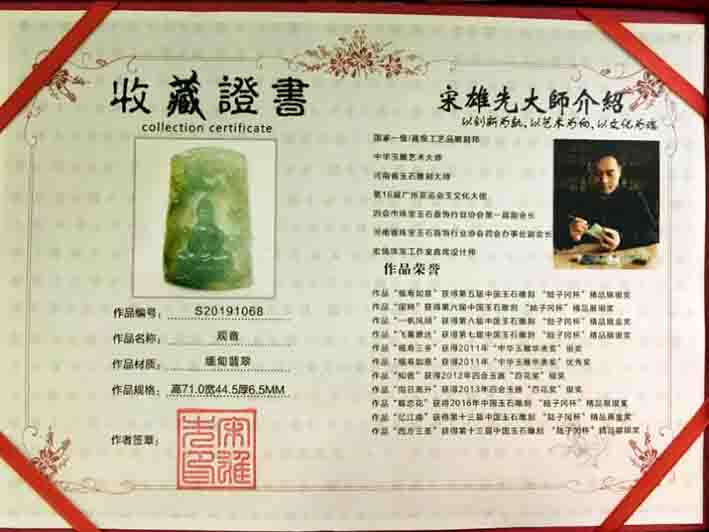 收藏證書
collection certificate
作品编号: S20191068
作品名称: 观音
作品材质: 缅甸翡翠
作品规格: 高71.0宽44.5厚6.5MM
作者签章:
宋雄先印
宋雄先大師介紹
以创新为轨、以艺术为向、以文化为魂
国家一级/高级工艺品雕刻师
中华玉雕艺术大师
河南省玉石雕刻大师
第16届广州亚运会玉文化大使
四会市珠宝玉石首饰行业协会第一届副会长
河南省珠宝玉石首饰行业协会四会办事处副会长
宏锦珠宝工作室首席设计师
作品荣誉
作品“福寿如意”获得第五届中国玉石雕刻 “陆子冈杯”精品银奖
作品 获得第六届中国玉石雕刻 “陆子冈杯”精品银奖
作品“一帆风顺”获得第六届中国玉石雕刻 “陆子冈杯”精品
作品“飞黄腾达”获得第七届中国玉石雕刻 “陆子冈杯”精品
作品“福寿三多”获得2011年“中华玉雕华表奖”银奖
作品“福寿如意”获得2011年“中华玉雕华表奖”优秀奖
作品“知音”获得2012年四会玉器“百花奖”银奖
作品“指日高升”获得2013年四会玉器“百花奖”银奖
作品 获得2016年中国玉石雕刻“陆子冈杯”精品银奖
作品 获得第十三届中国玉石雕刻 “陆子冈杯”精品
作品“西方三圣”获得第十三届中国玉石雕刻 “陆子冈杯”精品